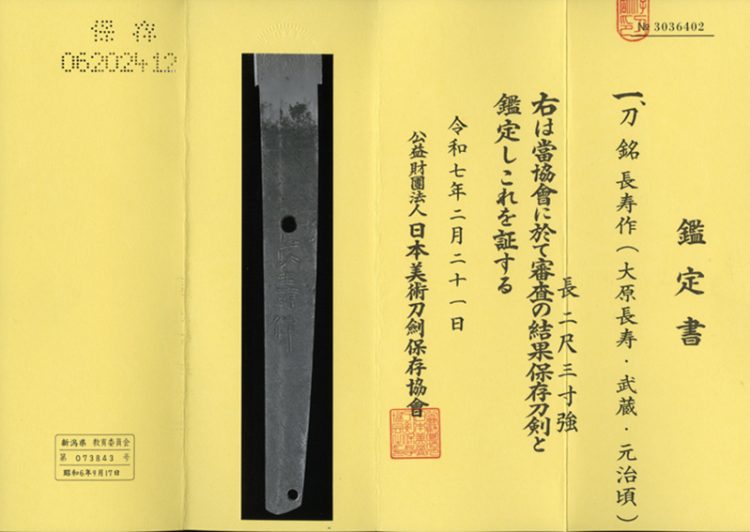 № 3036402
鑑定書
一、刀 銘 長寿作(大原長寿・武蔵・元治頃)
長二尺三寸強
右は當協會に於て審査の結果保存刀剣と
鑑定しこれを証する
令和七年二月二十一日
公益財團法人 日本美術刀劍保存協會
保存
06202412
新潟県 教育委員会
第 073843 号
昭和6年9月17日